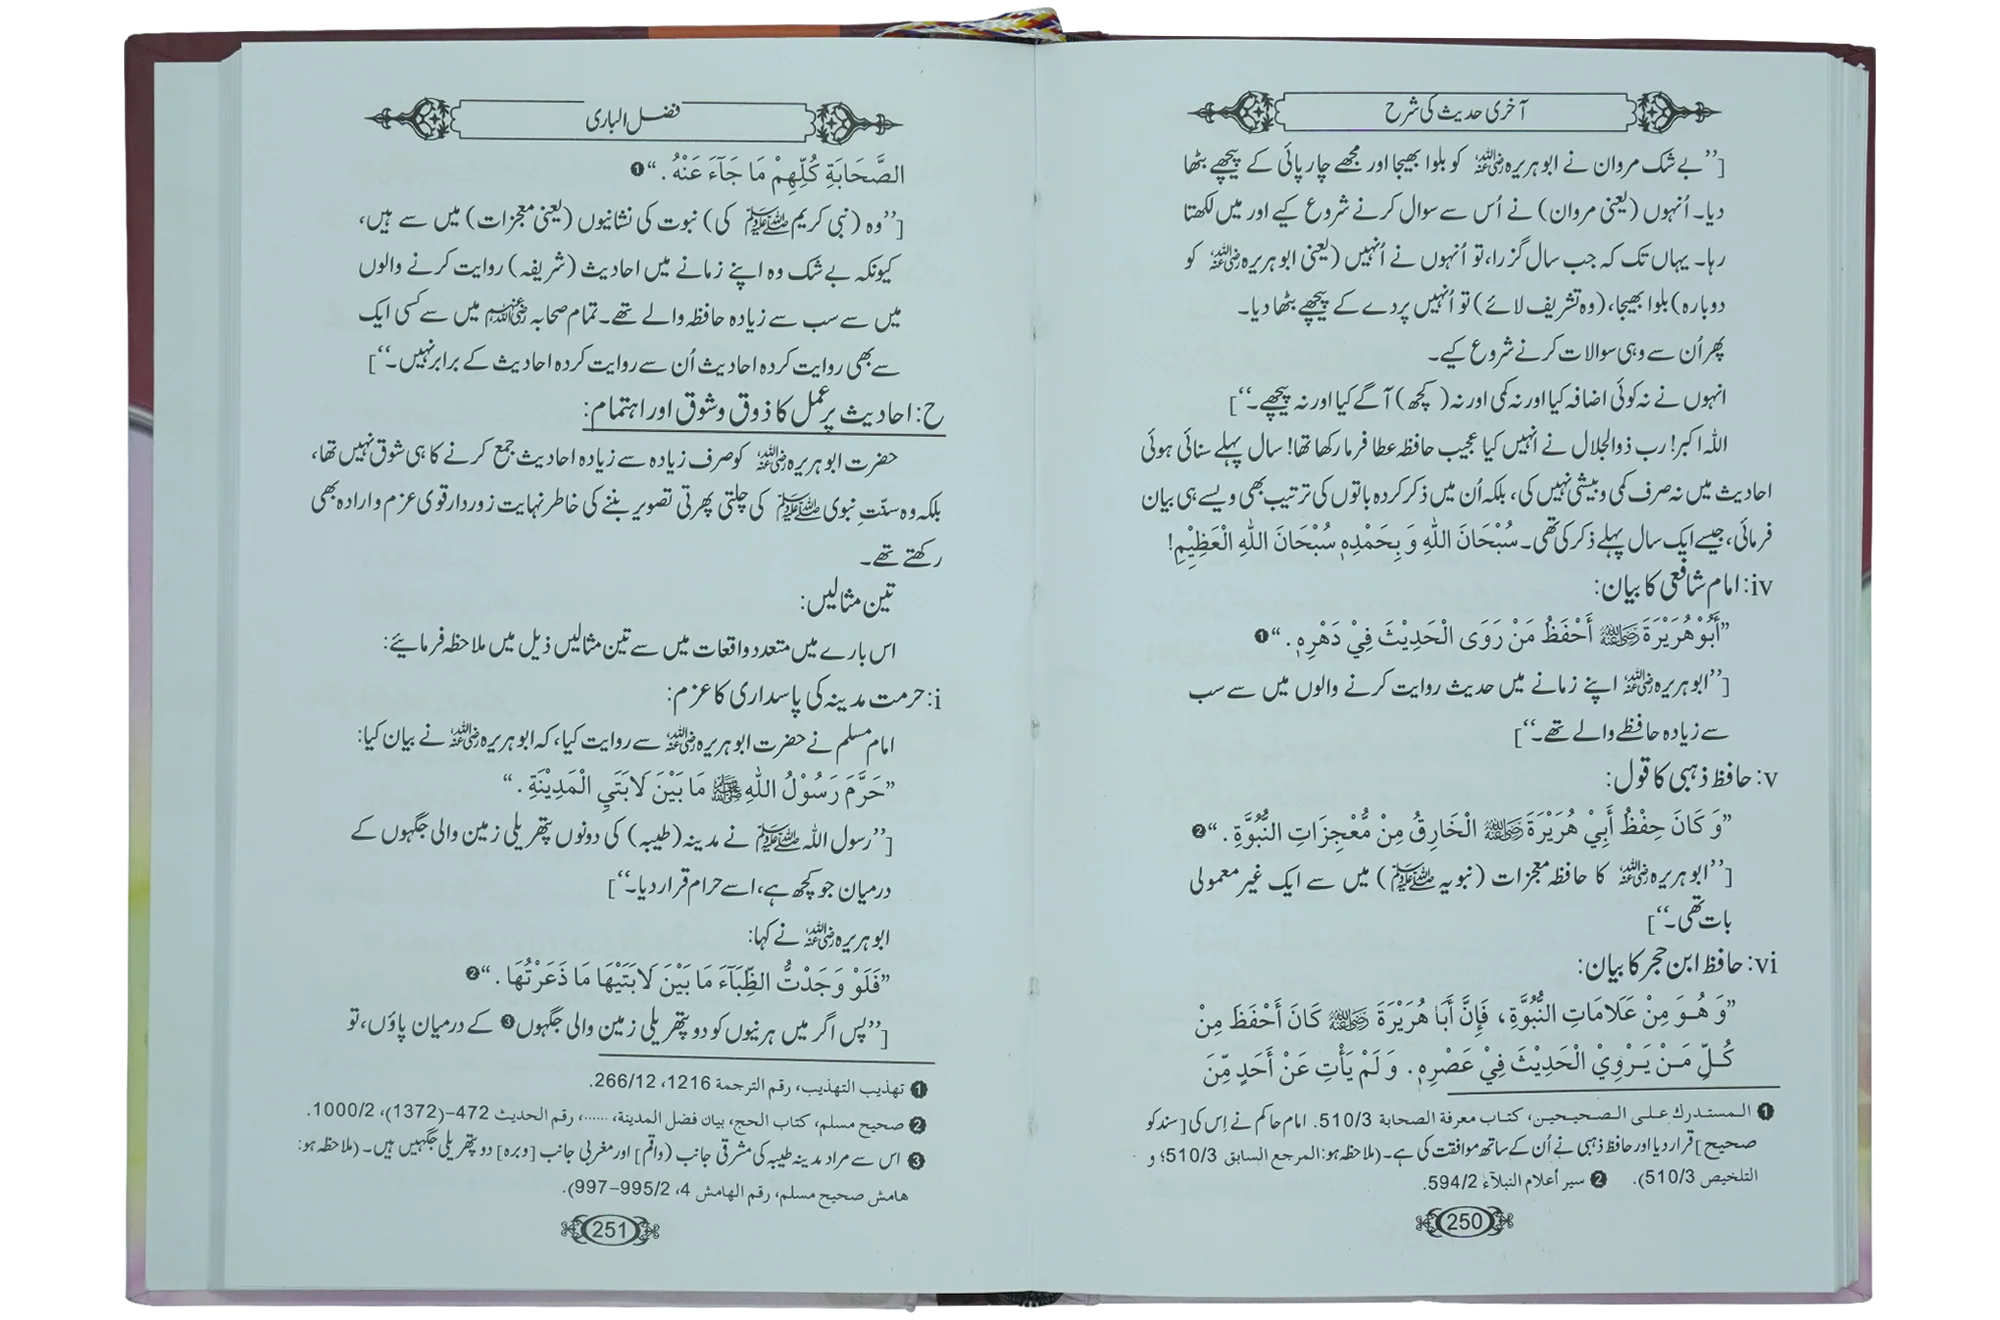 آخری حدیث کی شرح
[’’بے شک مروان نے ابوہریرہ رضی اللہ عنہ کو بلوا بھیجا اور مجھے چارپائی کے پیچھے بٹھا
دیا۔ اُنہوں (یعنی مروان) نے اُس سے سوال کرنے شروع کیے اور میں لکھتا
رہا۔ یہاں تک کہ جب سال گزرا، تو اُنہوں نے اُنہیں (یعنی ابوہریرہ رضی اللہ عنہ کو
دوبارہ) بلوا بھیجا، (وہ تشریف لائے) تو اُنہیں پردے کے پیچھے بٹھا دیا۔
پھر اُن سے وہی سوالات کرنے شروع کیے۔
انہوں نے نہ کوئی اضافہ کیا اور نہ کمی اور نہ (کچھ) آگے کیا اور نہ پیچھے۔‘‘]
اللہ اکبر! رب ذوالجلال نے انہیں کیا عجیب حافظہ عطا فرما رکھا تھا! سال پہلے سنائی ہوئی
احادیث میں نہ صرف کمی و بیشی نہیں کی، بلکہ اُن میں ذکر کردہ باتوں کی ترتیب بھی ویسے ہی بیان
فرمائی، جیسے ایک سال پہلے ذکر کی تھی۔ سُبْحَانَ اللّٰهِ وَ بِحَمْدِهٖ سُبْحَانَ اللّٰهِ الْعَظِيْمِ!
iv: امام شافعی کا بیان:
”أَبُوْهُرَيْرَةَ رضی اللہ عنہ أَحْفَظُ مَنْ رَوَى الْحَدِيْثَ فِيْ دَهْرِهٖ .“ ❶
[’’ابوہریرہ رضی اللہ عنہ اپنے زمانے میں حدیث روایت کرنے والوں میں سے سب
سے زیادہ حافظے والے تھے۔‘‘]
v: حافظ ذہبی کا قول:
”وَ كَانَ حِفْظُ أَبِيْ هُرَيْرَةَ رضی اللہ عنہ الْخَارِقُ مِنْ مُّعْجِزَاتِ النُّبُوَّةِ .“ ❷
[’’ابوہریرہ رضی اللہ عنہ کا حافظہ معجزات (نبویہ ﷺ) میں سے ایک غیر معمولی
بات تھی۔‘‘]
vi: حافظ ابن حجر کا بیان:
”وَ هُوَ مِنْ عَلَامَاتِ النُّبُوَّةِ، فَإِنَّ أَبَا هُرَيْرَةَ رضی اللہ عنہ كَانَ أَحْفَظَ مِنْ
كُلِّ مَنْ يَرْوِيْ الْحَدِيْثَ فِيْ عَصْرِهٖ. وَ لَمْ يَأْتِ عَنْ أَحَدٍ مِّنَ
❶ المستدرك على الصحيحين، كتاب معرفة الصحابة 510/3. امام حاکم نے اِس کی [سند کو
صحیح] قرار دیا اور حافظ ذہبی نے اُن کے ساتھ موافقت کی ہے۔ (ملاحظہ ہو: المرجع السابق 510/3؛ و
التلخيص 510/3). ❷ سير أعلام النبلآء 594/2.
250
فضل الباری
الصَّحَابَةِ كُلِّهِمْ مَا جَآءَ عَنْهُ .“ ❶
[’’وہ (نبی کریم ﷺ کی) نبوت کی نشانیوں (یعنی معجزات) میں سے ہیں،
کیونکہ بے شک وہ اپنے زمانے میں احادیث (شریفہ) روایت کرنے والوں
میں سے سب سے زیادہ حافظہ والے تھے۔ تمام صحابہ رضی اللہ عنہم میں سے کسی ایک
سے بھی روایت کردہ احادیث اُن سے روایت کردہ احادیث کے برابر نہیں۔‘‘]
ح: احادیث پر عمل کا ذوق و شوق اور اہتمام:
حضرت ابوہریرہ رضی اللہ عنہ کو صرف زیادہ سے زیادہ احادیث جمع کرنے کا ہی شوق نہیں تھا،
بلکہ وہ سنّتِ نبوی ﷺ کی چلتی پھرتی تصویر بننے کی خاطر نہایت زوردار قوی عزم و ارادہ بھی
رکھتے تھے۔
تین مثالیں:
اس بارے میں متعدد واقعات میں سے تین مثالیں ذیل میں ملاحظہ فرمائیے:
i: حرمت مدینہ کی پاسداری کا عزم:
امام مسلم نے حضرت ابوہریرہ رضی اللہ عنہ سے روایت کیا، کہ ابوہریرہ رضی اللہ عنہ نے بیان کیا:
”حَرَّمَ رَسُوْلُ اللّٰهِ ﷺ مَا بَيْنَ لَابَتَيِ الْمَدِيْنَةِ .“
[’’رسول اللہ ﷺ نے مدینہ (طیبہ) کی دونوں پتھریلی زمین والی جگہوں کے
درمیان جو کچھ ہے، اسے حرام قرار دیا۔‘‘]
ابوہریرہ رضی اللہ عنہ نے کہا:
”فَلَوْ وَجَدْتُّ الظِّبَآءَ مَا بَيْنَ لَابَتَيْهَا مَا ذَعَرْتُهَا .“ ❷
[’’پس اگر میں ہرنیوں کو دو پتھریلی زمین والی جگہوں ❸ کے درمیان پاؤں، تو
❶ تهذيب التهذيب، رقم الترجمة 1216، 266/12.
❷ صحيح مسلم، كتاب الحج، بيان فضل المدينة، ......، رقم الحديث 472-(1372)، 1000/2.
❸ اس سے مراد مدینہ طیبہ کی مشرقی جانب (واقم) اور مغربی جانب [وبرہ] دو پتھریلی جگہیں ہیں۔ (ملاحظہ ہو:
هامش صحيح مسلم، رقم الهامش 4، 995/2-997).
251